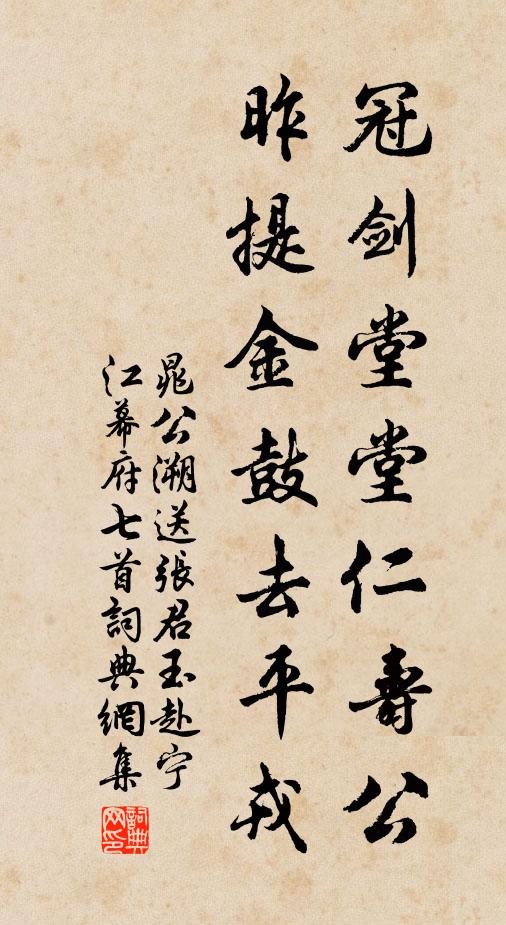 冠剑堂堂仁壽公
昨提金鼓去平戎
晁公溯送張君玉赴宁
江幕府七首詞典網集
詞典
网印